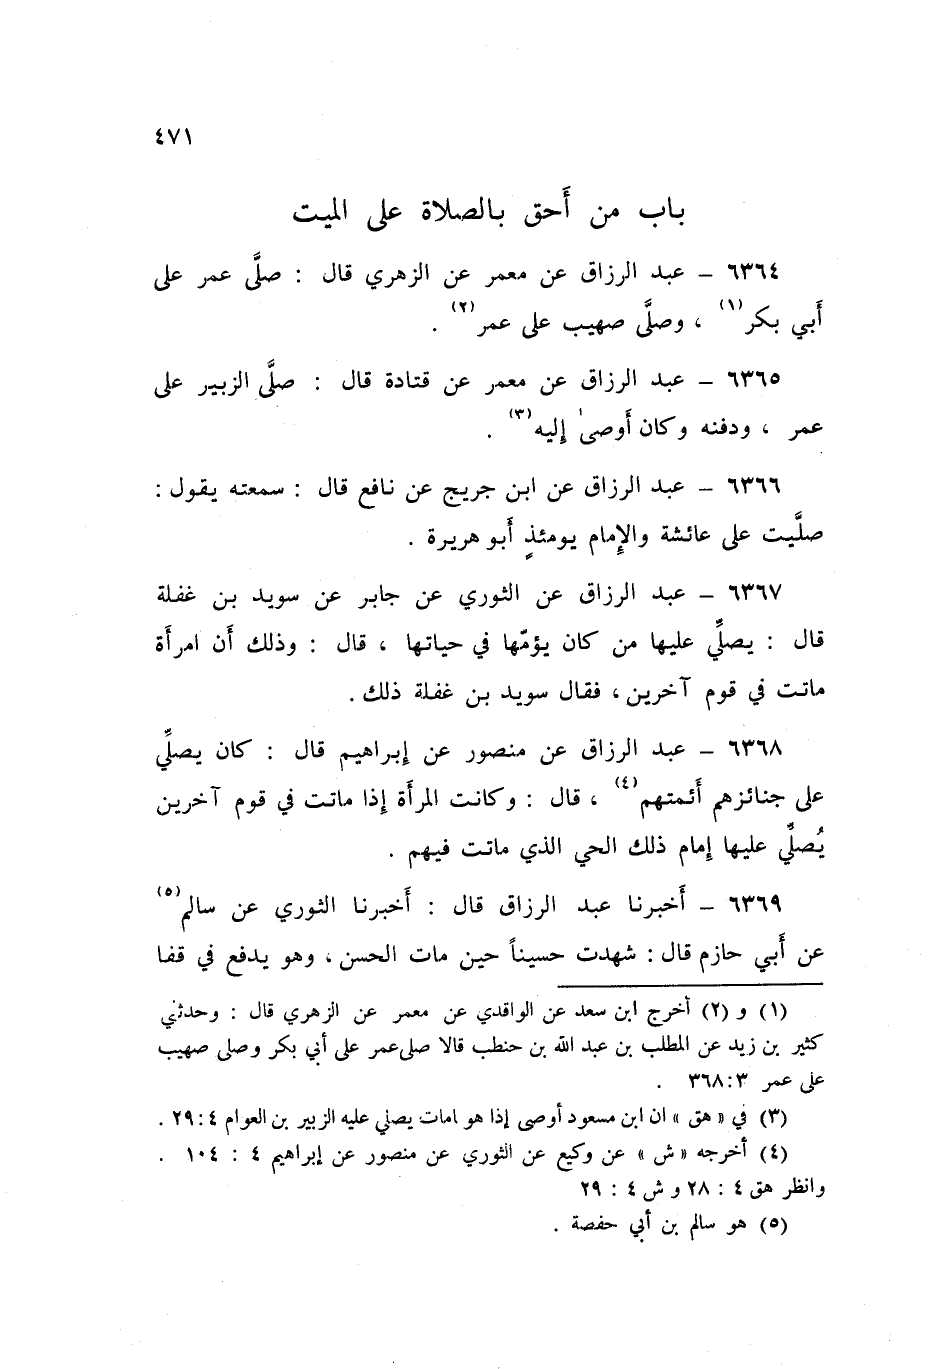 ٤٧١
باب من أَحق بالصلاة على الميت
٦٣٦٤ – عبد الرزاق عن معمر عن الزهري قال : صلَّى عمر على
أَبي بكر(١) ، وصلَّى صهيب على عمر(٢) .
٦٣٦٥ – عبد الرزاق عن معمر عن قتادة قال : صلَّى الزبير على
عمر ، ودفنه وكان أَوصىٰ إليه(٣) .
٦٣٦٦ – عبد الرزاق عن ابن جريج عن نافع قال : سمعته يقول :
صلَّيت على عائشة والإمام يومئذٍ أَبو هريرة .
٦٣٦٧ – عبد الرزاق عن الثوري عن جابر عن سويد بن غفلة
قال : يصلِّي عليها من كان يؤمّها في حياتها ، قال : وذلك أَن امرأَة
ماتت في قوم آخرين ، فقال سويد بن غفلة ذلك .
٦٣٦٨ – عبد الرزاق عن منصور عن إبراهيم قال : كان يصلِّي
على جنائزهم أَئمتهم(٤) ، قال : وكانت المرأَة إذا ماتت في قوم آخرين
يُصلِّي عليها إمام ذلك الحي الذي ماتت فيهم .
٦٣٦٩ – أَخبرنا عبد الرزاق قال : أَخبرنا الثوري عن سالم(٥)
عن أَبي حازم قال : شهدت حسيناً حين مات الحسن ، وهو يدفع في قفا
(١) و (٢) أخرج ابن سعد عن الواقدي عن معمر عن الزهري قال : وحدثني
كثير بن زيد عن المطلب بن عبد الله بن حنطب قالا صلى عمر على أبي بكر وصلى صهيب
على عمر ٣:٣٦٨ .
(٣) في « هق » ان ابن مسعود أوصى إذا هو امات يصلي عليه الزبير بن العوام ٤:٢٩ .
(٤) أخرجه « ش » عن وكيع عن الثوري عن منصور عن إبراهيم ٤ : ١٠٤ .
وانظر هق ٤ : ٢٨ و ش ٤ : ٢٩
(٥) هو سالم بن أبي حفصة .